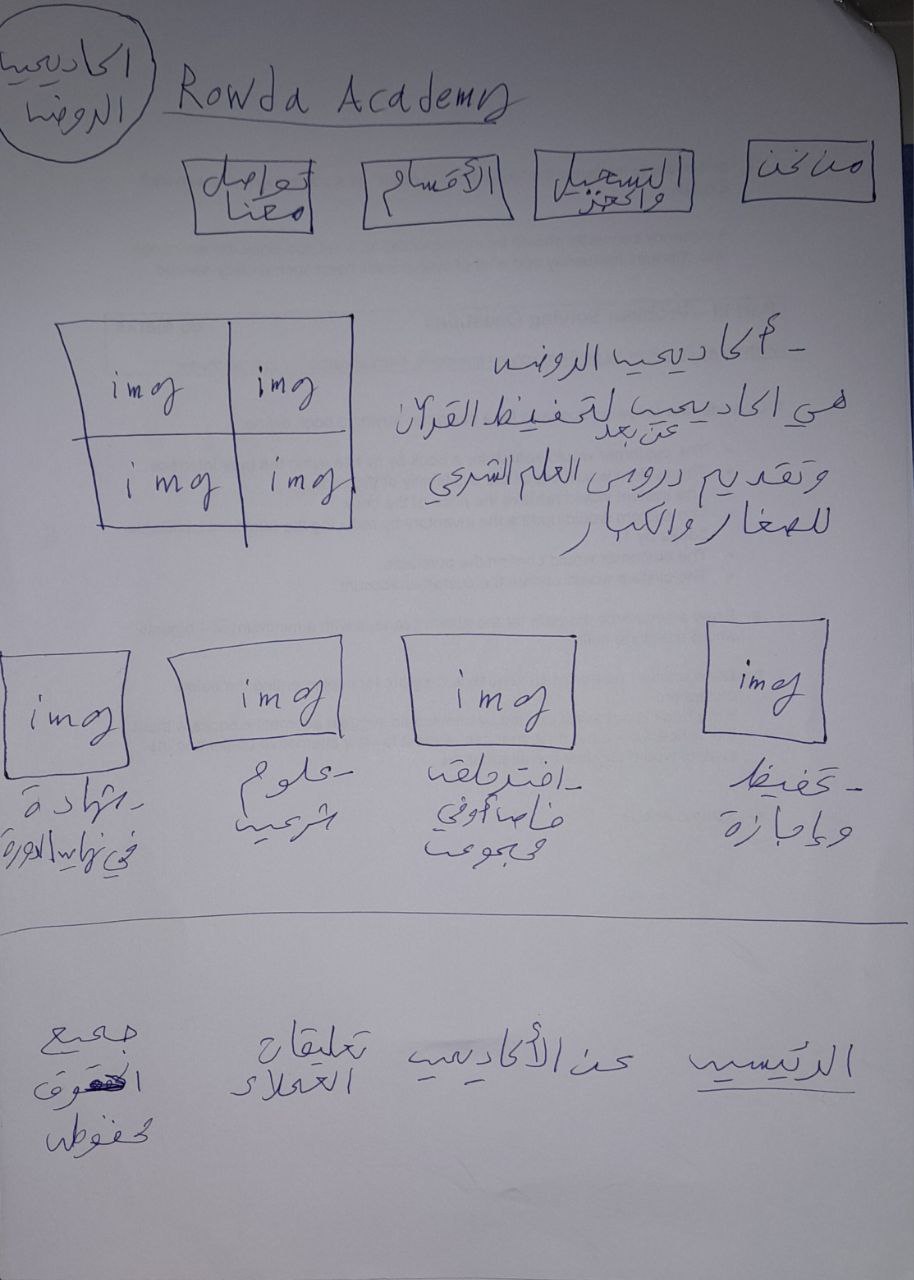 اكاديمية
الروضة
Rowda Academy
من نحن
التسجيل
والحجز
الأقسام
تواصل
معنا
- أكاديمية الروضة
هي اكاديمية لتحفيظ القرآن
عن بعد
وتقديم دروس العلم الشرعي
للصغار والكبار
img
img
img
img
img
img
img
img
- تحفيظ
وإجازة
- اختر حلقة
خاصة أو في
مجموعة
- علوم
شرعية
- شهادة
في نهاية الدورة
الرئيسية
عن الأكاديمية
تعليقات
العملاء
جميع
الحقوق
محفوظة